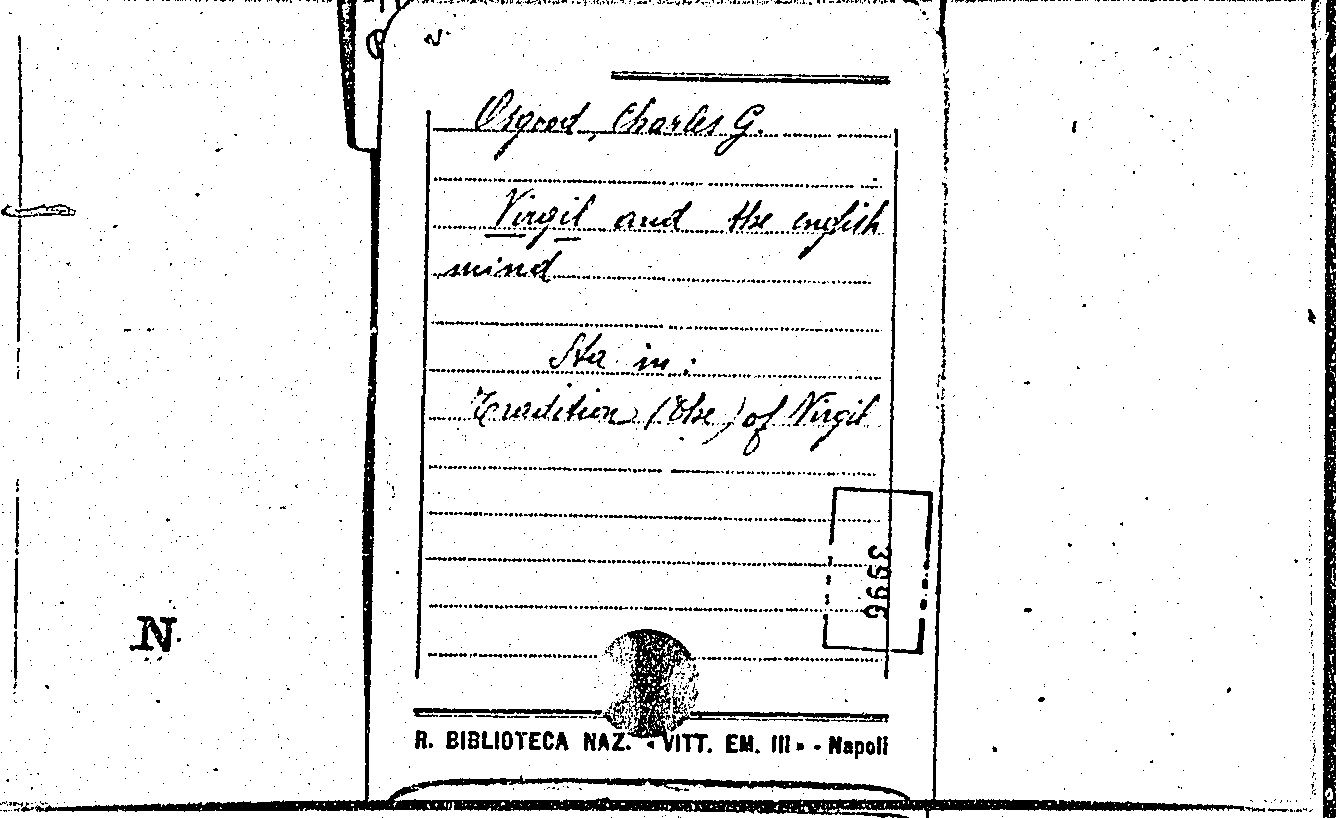 Osgood, Charles G.
Virgil and the english
mind
Sta in:
Tradition (The) of Virgil
3996
N
R. BIBLIOTECA NAZ. "VITT. EM. III" - Napoli